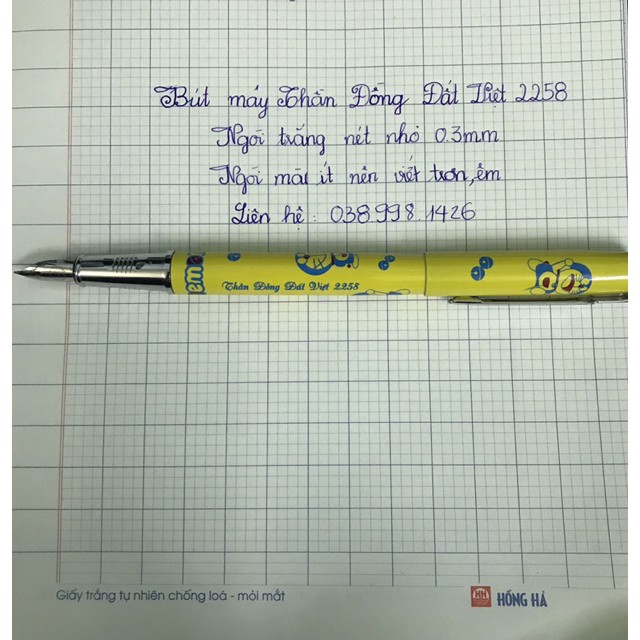 Bút máy Thần Đồng Đất Việt 2258
Ngòi trắng nét nhỏ 0.3mm
Ngòi mài ít nên viết trơn, êm
Liên hệ: 038.998.1426
Thần Đồng Đất Việt 2258
Giấy trắng tự nhiên chống loá - mỏi mắt
HH HỒNG HÀ